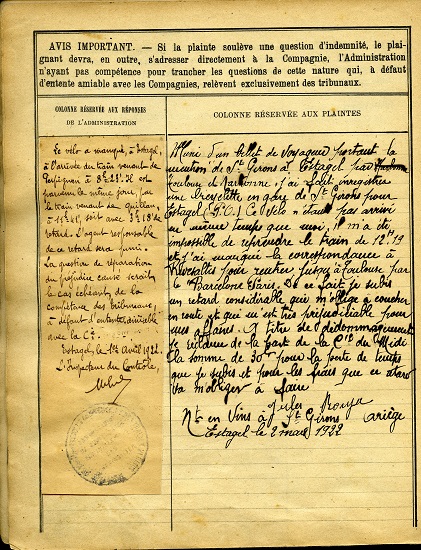 AVIS IMPORTANT. — Si la plainte soulève une question d'indemnité, le plai-
gnant devra, en outre, s'adresser directement à la Compagnie, l'Administration
n'ayant pas compétence pour trancher les questions de cette nature qui, à défaut
d'entente amiable avec les Compagnies, relèvent exclusivement des tribunaux.
COLONNE RÉSERVÉE AUX RÉPONSES
DE L'ADMINISTRATION
Le vélo a manqué, à Estagel,
à l'arrivée du train venant de
Perpignan à 8h23. Il est
parvenu le même jour, par
le train venant de Quillan,
à 11h41, soit avec 3h18 de
retard. L'agent responsable
de ce retard sera puni.
La question de réparation
du préjudice causé serait,
le cas échéant, de la
compétence des tribunaux
à défaut d'entente amiable
avec la Cie.
Estagel, le 1er Avril 1922
L'Inspecteur du Contrôle,
COLONNE RÉSERVÉE AUX PLAINTES
Muni d'un billet de voyageur portant la
mention de St Girons à Estagel par
Toulouse et Narbonne, j'ai fait enregistrer
une bicyclette en gare de St Girons pour
Estagel (P.O.) Ce vélo n'étant pas arrivé
en même temps que moi, il m'a été
impossible de reprendre le train de 12h19
et j'ai manqué la correspondance à
Rivesaltes pour rentrer jusqu'à Toulouse par
le Barcelone Paris. De ce fait je subis
un retard considérable qui m'oblige à coucher
en route et qui m'est très préjudiciable pour
mes affaires. A titre de dédommagement
je réclame de la part de la Cie du Midi
la somme de 30f pour la perte de temps
que je subis et pour les frais que ce retard
va m'obliger à faire
Jules Rouya
Nt en Vins à St Girons Ariège
Estagel le 2 mars 1922